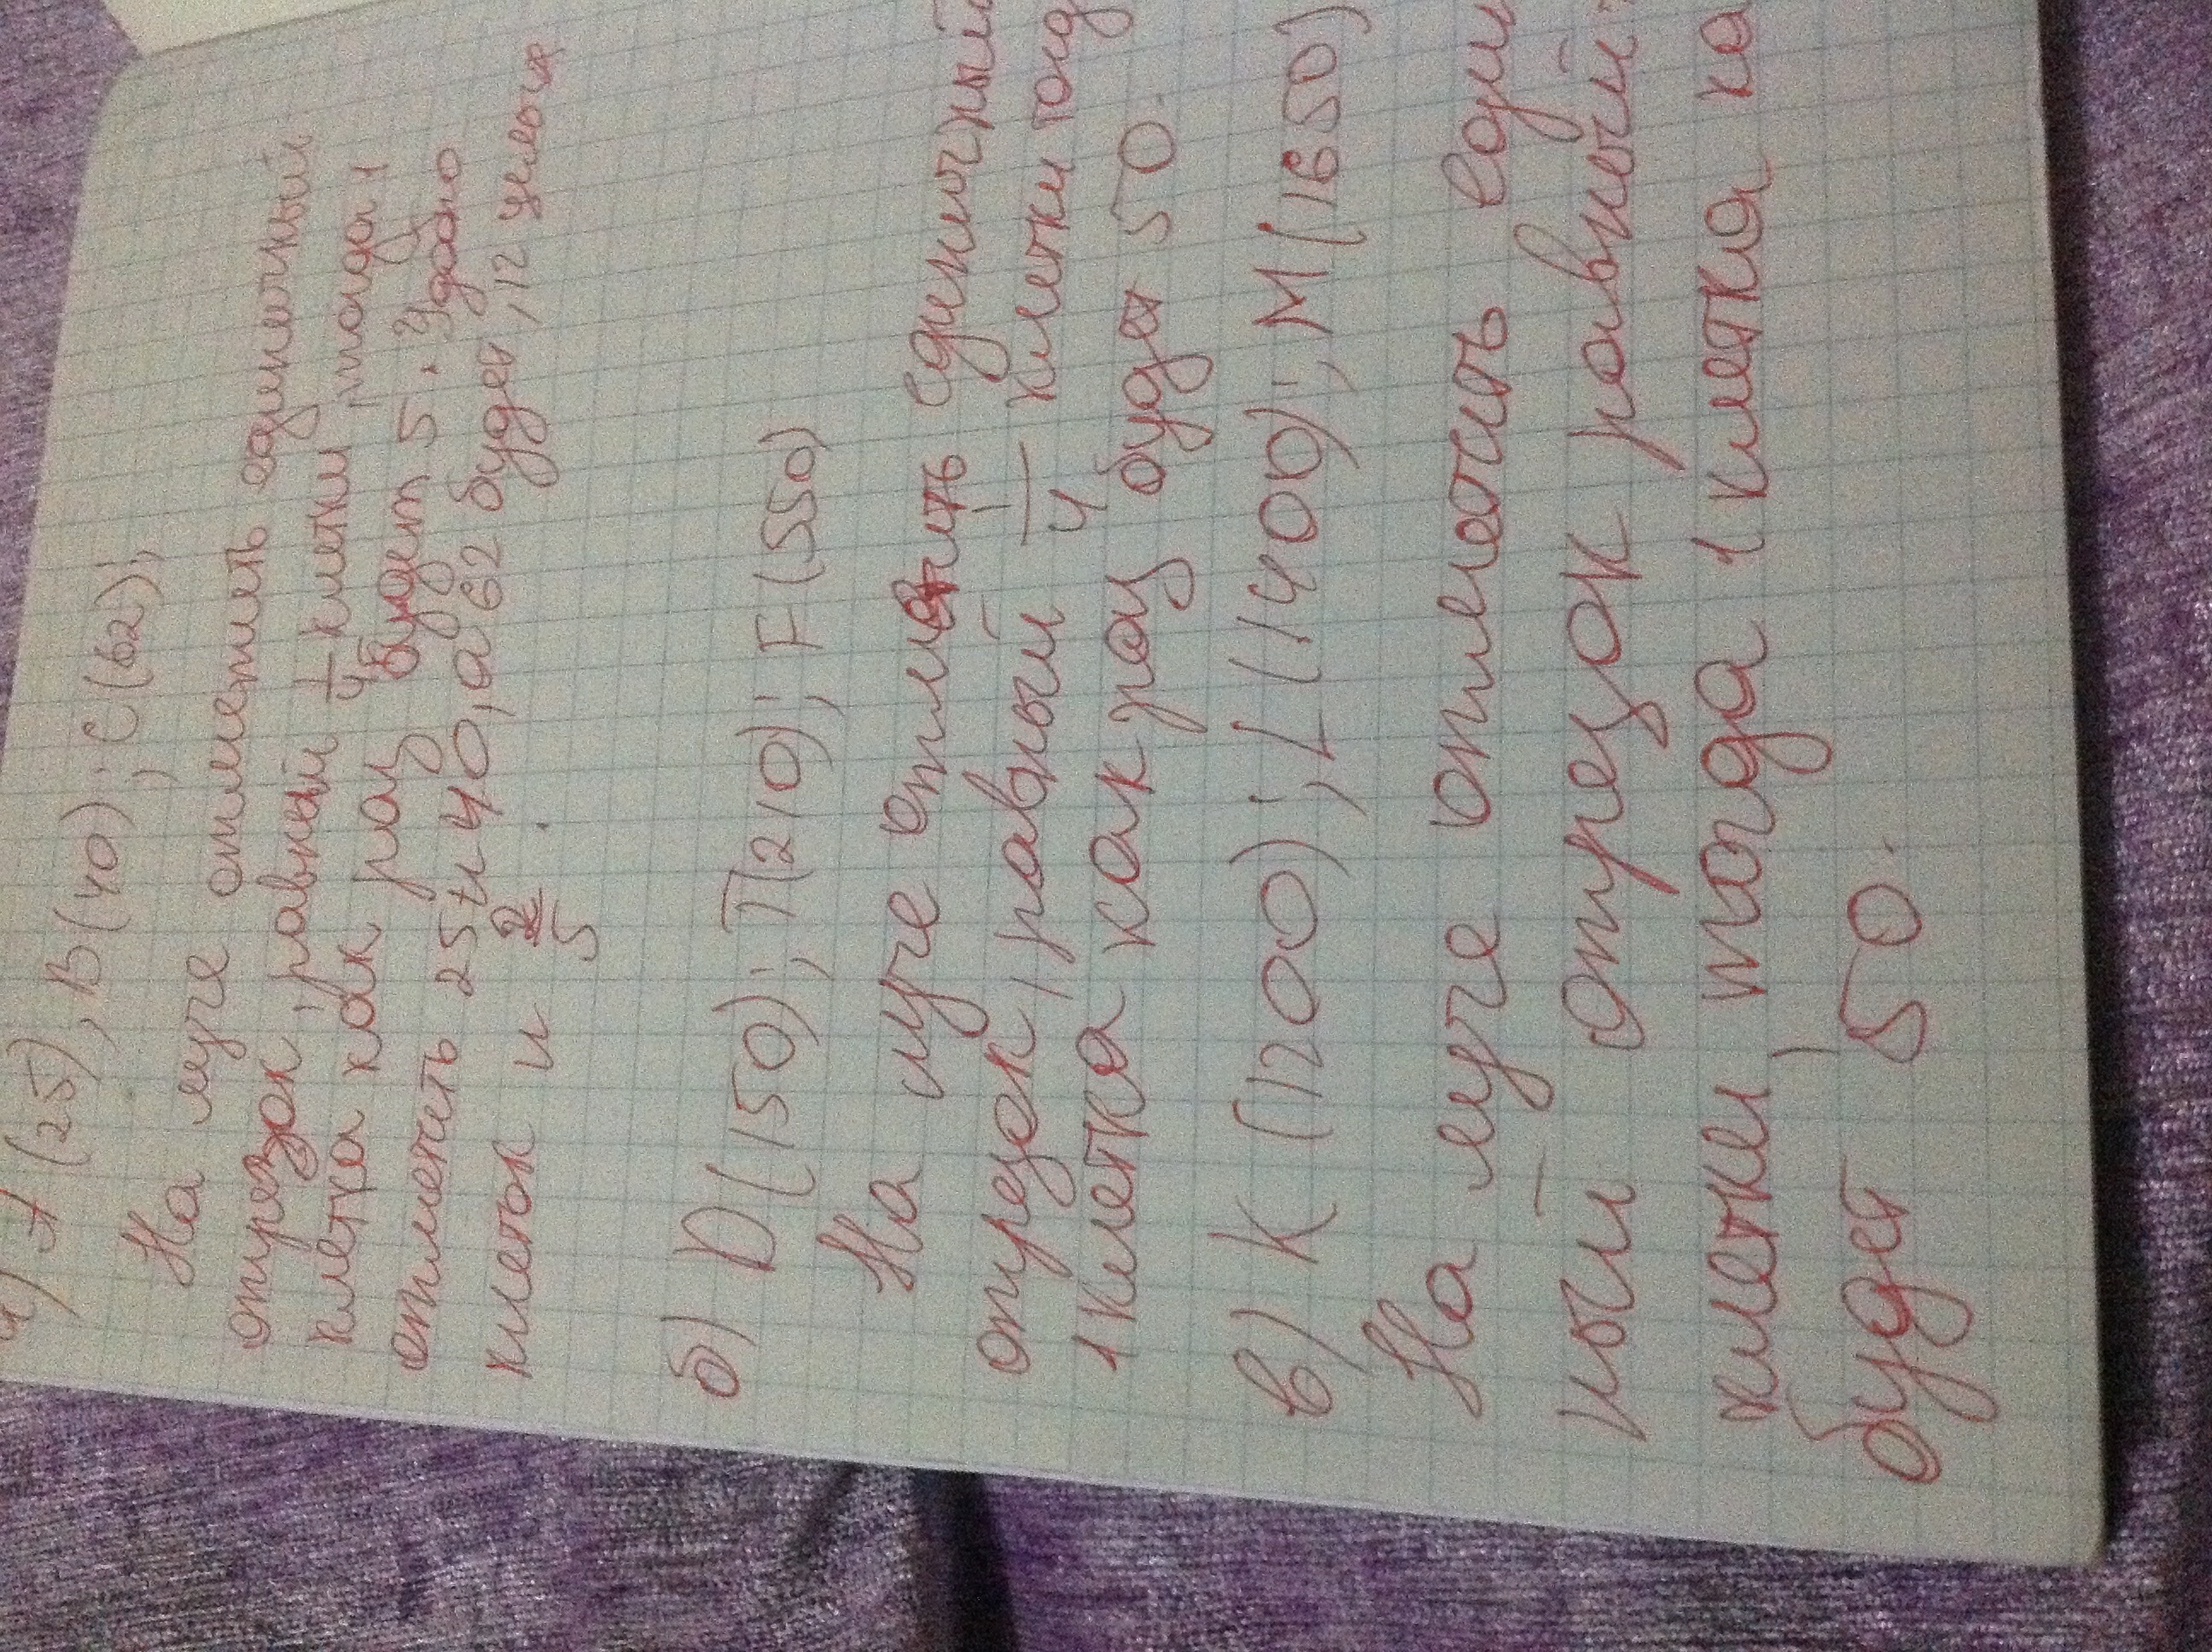 а) А (25); В (40); С (62);
На луче отметить единичный
отрезок, равный 1/4 клетки тогда 1
клетка как раз будет 5. Удобно
отметить 25 и 40, а 62 будет, 12 целых
клеток и 2/5.
б) D (150); П210); F (550)
На луче отметить единичный
отрезок, равный 1/4 клетки тогд
1 клетка как раз будет 50.
в) К (1200); L (1400); М (1650)
На луче отметить един
ный отрезок равный
клетки, тогда 1 клетка ка
будет 50.